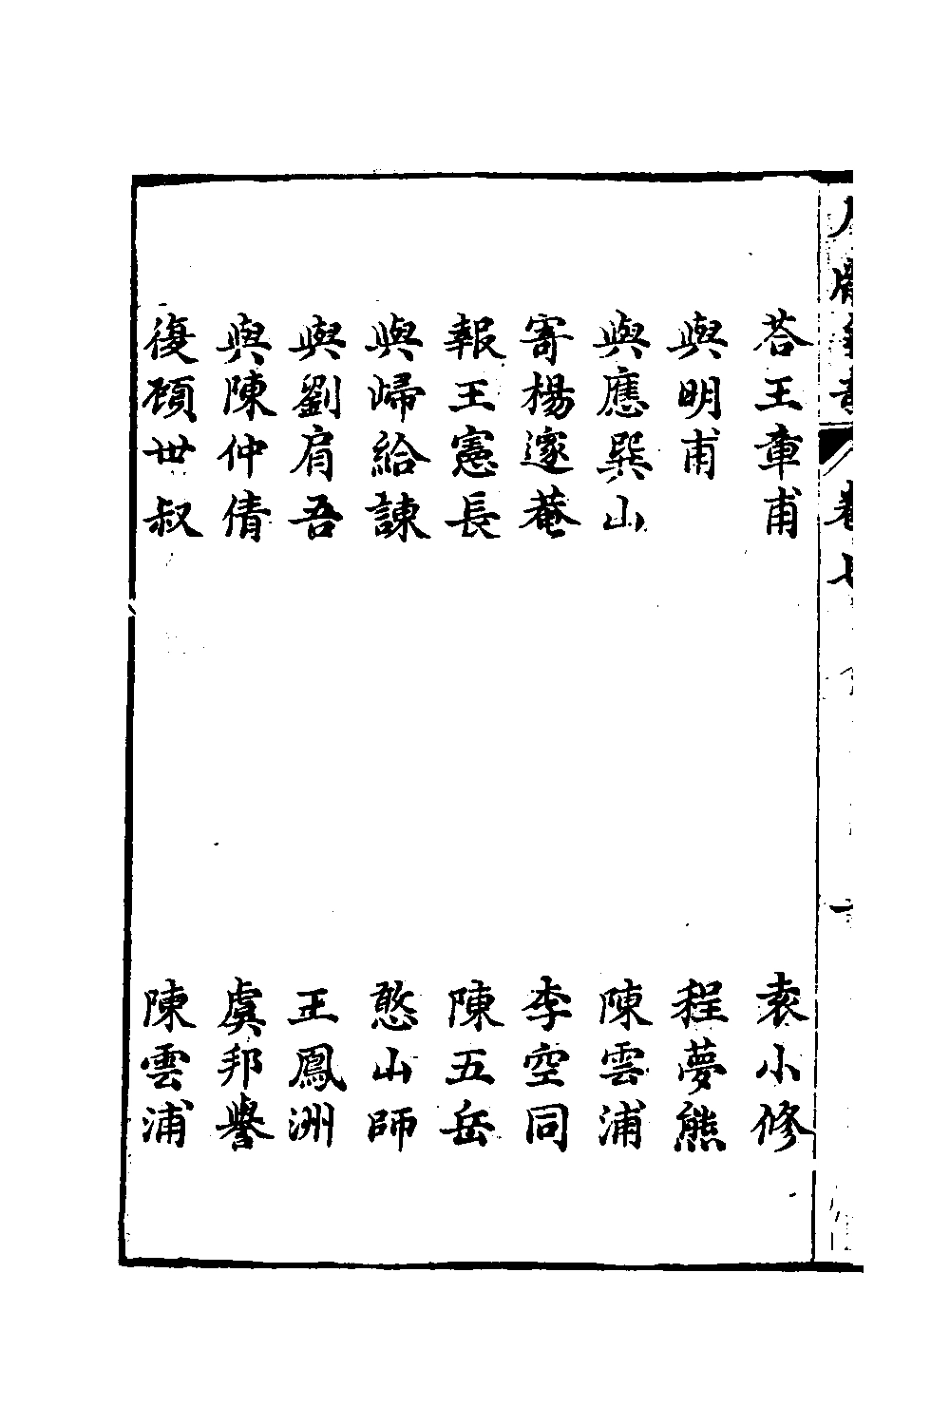 卷七
荅王章甫　袁小修
與明甫　程夢熊
與應巽山　陳雲浦
寄楊邃菴　李空同
報王憲長　陳五岳
與歸給諫　憨山師
與劉肩吾　王鳳洲
與陳仲倩　虞邦譽
復頋世叔　陳雲浦